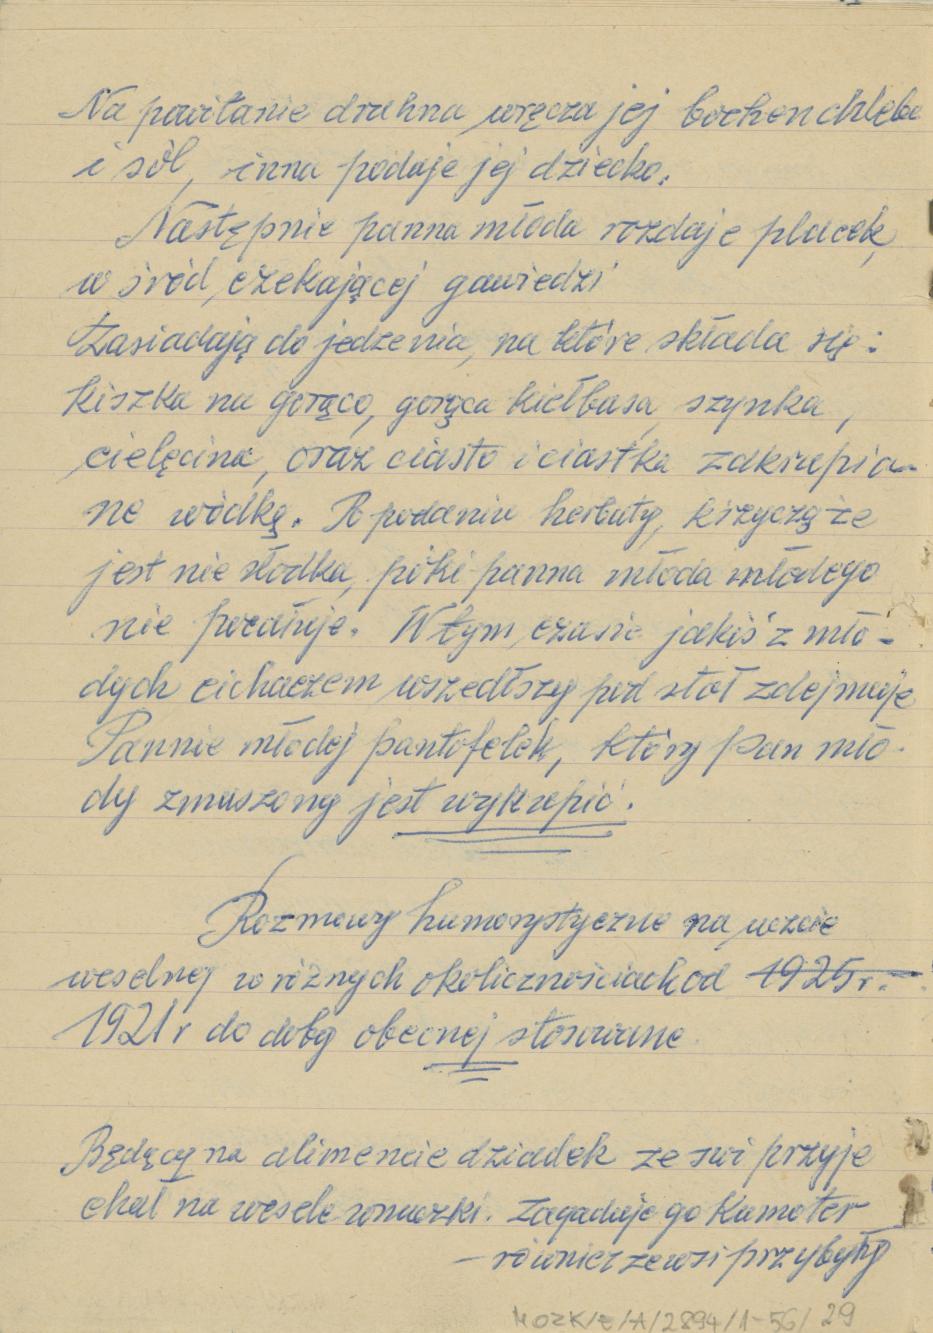 Na powitanie druhna wręcza jej bochen chleba
i sól, inna podaje jej dziecko.
Następnie panna młoda rozdaje placek,
w śród czekającej gawiedzi
Zasiadają do jedzenia, na które składa się:
kiszka na gorąco, gorąca kiełbasa, szynka,
cielęcina, oraz ciasto i ciastka zakrapia-
ne wódką. Po podaniu herbaty, krzyczą że
jest nie słodka, póki panna młoda młodego
nie pocałuje. W tym czasie jakiś z mło-
dych cichaczem wszedłszy pod stół zdejmuje
Pannie młodej pantofelek, który Pan mło-
dy zmuszony jest wykupić.
Rozmowy humorystyczne na uczcie
weselnej w różnych okolicznościach od 1925r.-
1921r do doby obecnej stosowane
Będący na alimencie dziadek ze swi przyje
chał na wesele wnuczki. Zagaduje go Kumoter
– również ze wsi przybyły
MOZK/E/A/2894/1-56/29